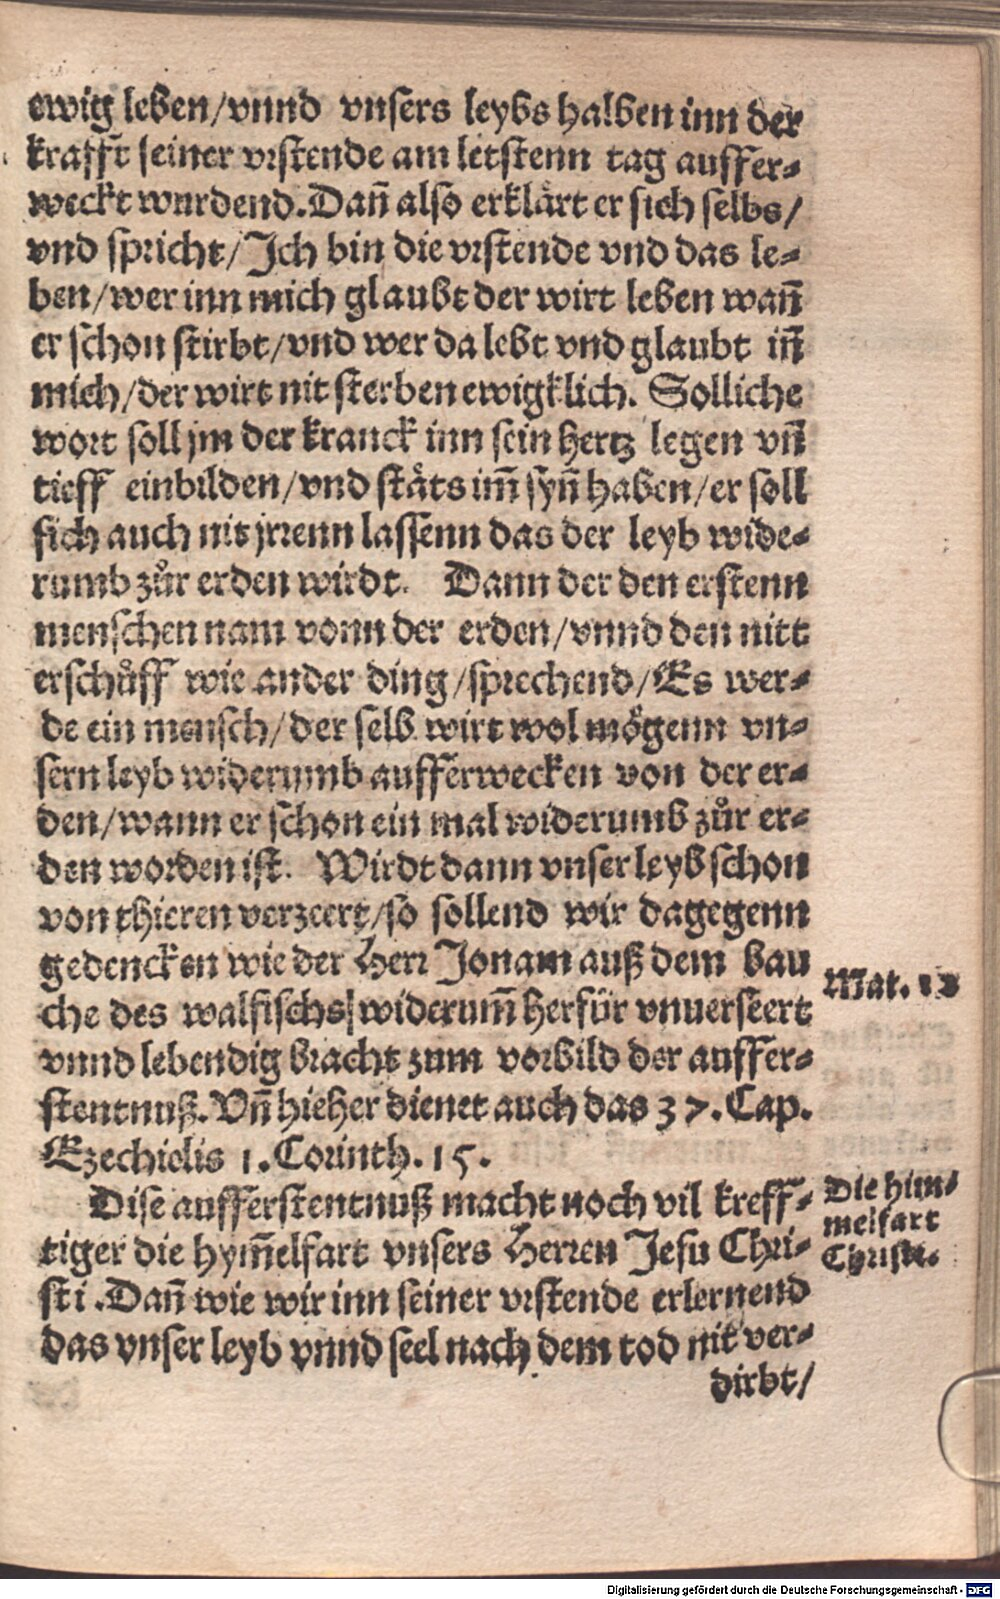 ewig leben/vnnd vnsers leybs halben inn der
krafft seiner vrstende am letstenn tag auffer⸗
weckt wurdend. Dañ also erklärt er sich selbs/
vnd spricht/ Ich bin die vrstende vnd das le⸗
ben/wer inn mich glaubt der wirt leben wañ
er schon stirbt/vnd wer da lebt vnd glaubt iñ
mich/der wirt nit sterben ewigklich. Solliche
wort soll jm der kranck inn sein hertz legen vñ
tieff einbilden/vnd stäts im̃ syñ haben/er soll
sich auch nit jrrenn lassenn das der leyb wide⸗
rumb zůr erden wirdt. Dann der den erstenn
menschen nam vonn der erden/vnnd den nitt
erschůff wie ander ding/sprechend/Es wer⸗
de ein mensch/der selb wirt wol mögenn vn⸗
sern leyb widerumb aufferwecken von der er⸗
den/wann er schon ein mal widerumb zůr er⸗
den worden ist. Wirdt dann vnser leyb schon
von thieren verzeert/so sollend wir dagegenn
gedencken wie der Herr Jonam auß dem bau
che des walfischs/widerum̃ herfür vnuerseert
vnnd lebendig bracht zum vorbild der auffer⸗
stentnuß. Vñ hieher dienet auch das 37. Cap.
Ezechielis 1. Corinth. 15.
Dise aufferstentnuß macht noch vil kreff⸗
tiger die hym̃elfart vnsers Herren Jesu Chri⸗
sti. Dañ wie wir inn seiner vrstende erlernend
das vnser leyb vnnd seel nach dem tod nit ver⸗
dirbt/
Mat. 12
Die him⸗
melfart
Christi.
Digitalisierung gefördert durch die Deutsche Forschungsgemeinschaft - DFG